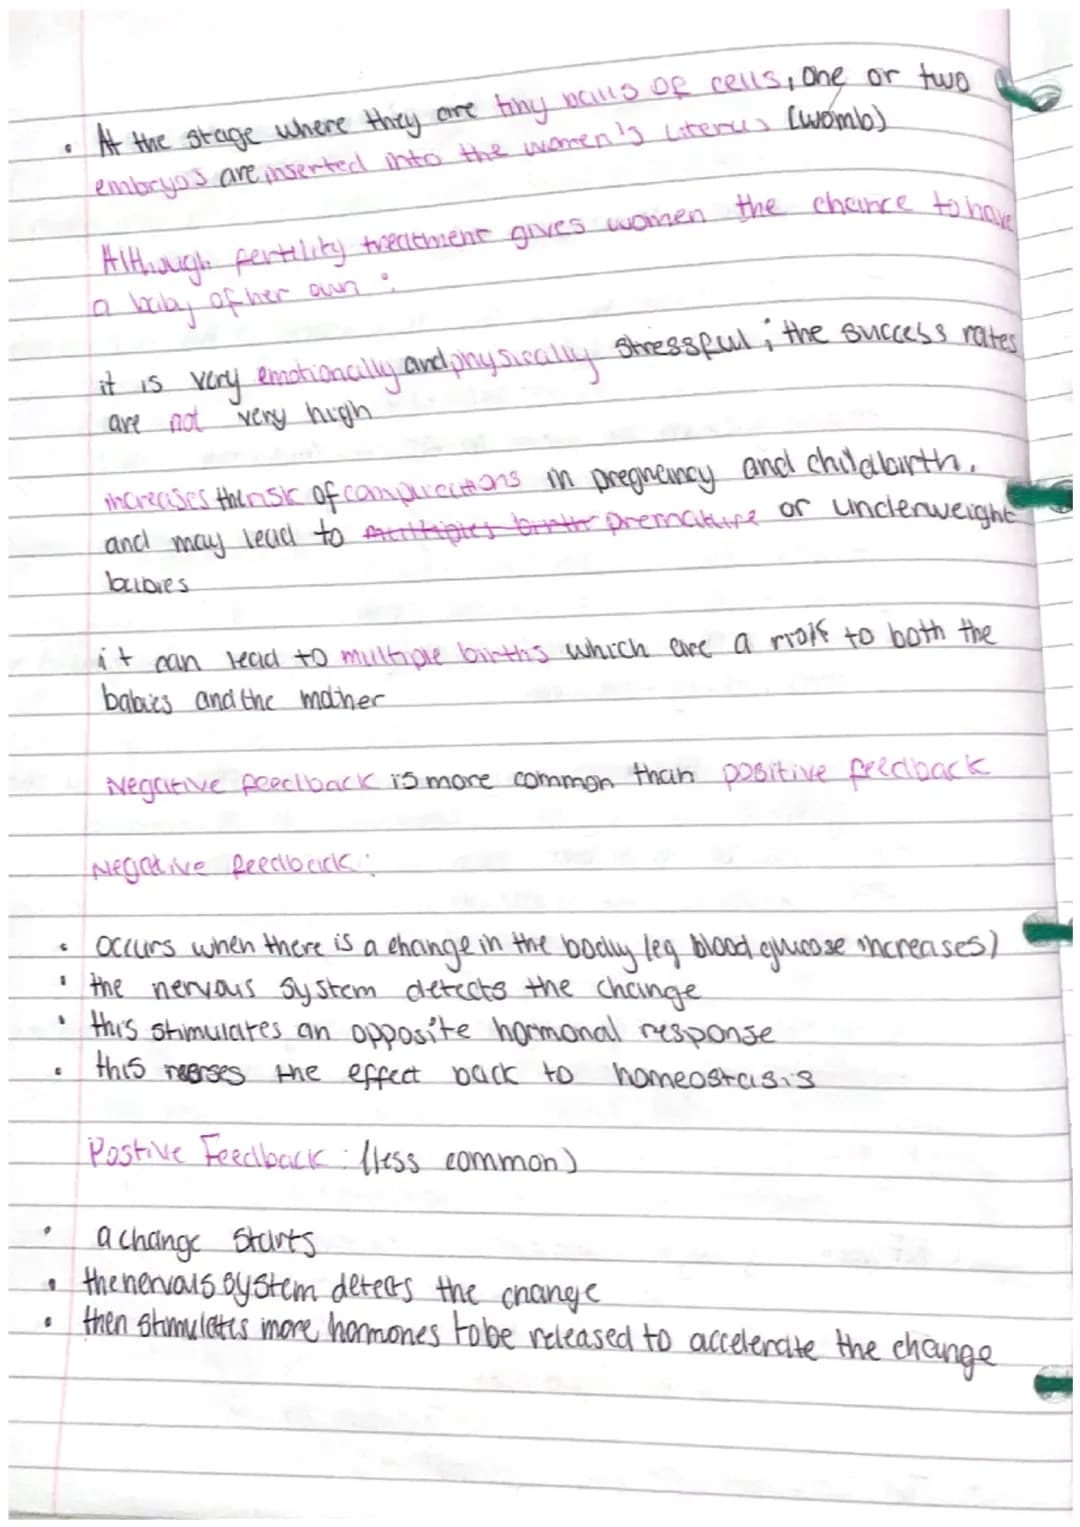 • At the stage where they are tiny balls of cells, one or two
embryos are inserted into the women's uterus (womb)
Although fertility treatment gives women the chance to have
a baby of her own :
it is very emotionally and physically stressful ; the success rates
are not very high
increases the risk of complications in pregnancy and childbirth.
and may lead to multiples birth premature or underweight
babies
it can lead to multiple births which are a risk to both the
babies and the mother
Negative feedback is more common than positive feedback
Negative feedback :
• occurs when there is a change in the body (eg blood glucose increases)
• the nervous system detects the change
• this stimulates an opposite hormonal response
• this reerses the effect back to homeostasis
Postive Feedback : (less common)
• a change starts
• the nervous system detects the change
• then stimulates more hormones to be released to accelerate the change